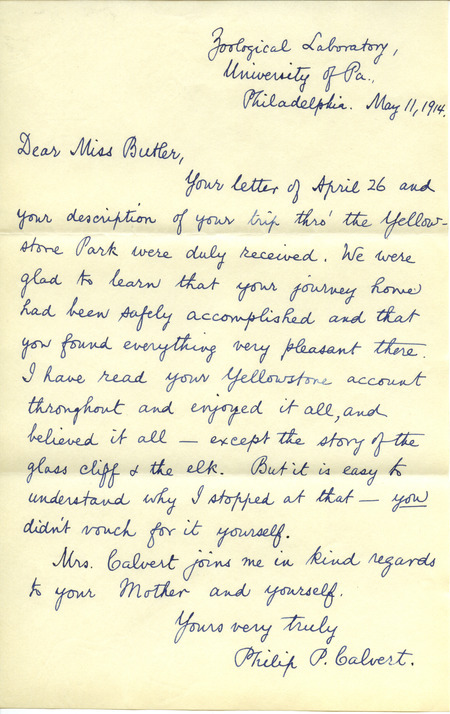 Zoological Laboratory,
University of Pa.,
Philadelphia. May 11, 1914.
Dear Miss Butler,
Your letter of April 26 and
your description of your trip thro' the Yellow-
stone Park were duly received. We were
glad to learn that your journey home
had been safely accomplished and that
you found everything very pleasant there.
I have read your Yellowstone account
throughout and enjoyed it all, and
believed it all — except the story of the
glass cliff & the elk. But it is easy to
understand why I stopped at that — you
didn't vouch for it yourself.
Mrs. Calvert joins me in kind regards
to your Mother and yourself.
Yours very truly
Philip P. Calvert.